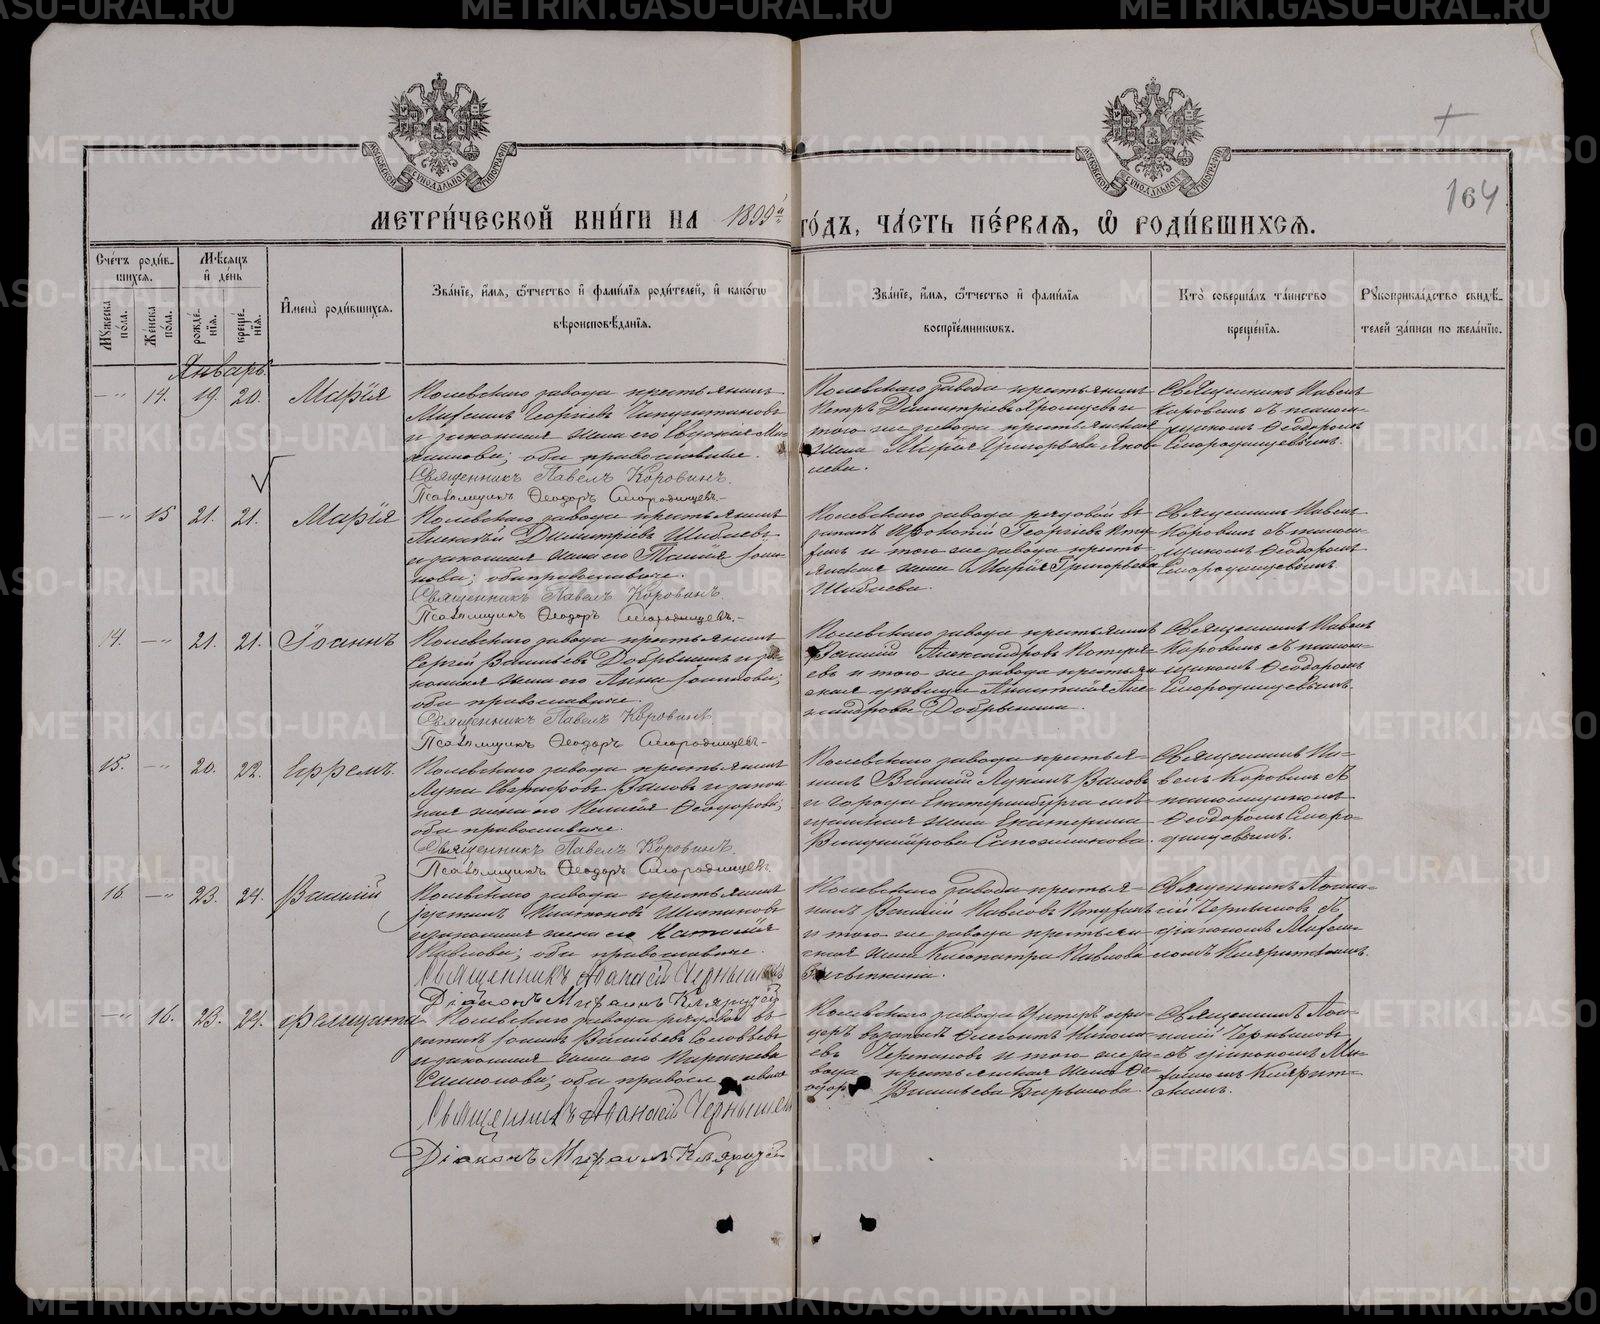 МЕТРИ́ЧЕСКОЙ КНИ́ГИ НА 1899й ГО́ДЪ, ЧА́СТЬ ПЕ́РВАЯ, Ѡ РОДИ́ВШИХСЯ.
164
Сче́тъ роди́в-
шихся.
Мѣ́сяцъ
и де́нь
Мꙋ́жеска по́ла.
Же́нска по́ла.
рожде́-
нїѧ.
креще́-
нїѧ.
И҆мена̀ роди́вшихся.
Зва́нїе, и҆́мѧ, ѻ҆́тчество и҆ фами́лїѧ роди́телей, и҆ како́гѡ
вѣроисповѣ́данїѧ.
Зва́нїе, и҆́мѧ, ѻ҆́тчество и҆ фами́лїѧ
воспрїе́мникѡвъ.
Кто̀ соверша́лъ та́инство
креще́нїѧ.
Рꙋкоприкла́дство свидѣ́-
телей за́писи по жела́нїю.
Январь
— " 14. 19. 20. Марія
Полевскаго завода крестьянинъ
Михаилъ Георгіевъ
и законная жена его Евдокія
оба православные.
Священникъ Павелъ Коровинъ.
Псаломщикъ Ѳеодоръ Смородинцевъ.
Полевскаго завода крестьянинъ
Петръ Димитріевъ и
того же завода крестьянская
жена Марія Григорьева Яков-
лева.
Священникъ Павелъ
Коровинъ съ псалом-
щикомъ Ѳеодоромъ
Смородинцевымъ.
— " 15 21. 21. Марія
Полевскаго завода крестьянинъ
Алексѣй Димитріевъ Шибаевъ
и законная жена его Іоан-
нова; оба православные.
Священникъ Павелъ Коровинъ.
Псаломщикъ Ѳеодоръ Смородинцевъ.
Полевскаго завода рядовой въ
запасѣ Прокопій Георгіевъ
и того же завода кресть-
янская жена Марія Григорьева
Шибаева.
Священникъ Павелъ
Коровинъ съ псалом-
щикомъ Ѳеодоромъ
Смородинцевымъ.
14. — " 21. 21. Іоаннъ
Полевскаго завода крестьянинъ
Сергій Васильевъ Добрынинъ и за-
конная жена его Анна Іоаннова;
оба православные.
Священникъ Павелъ Коровинъ.
Псаломщикъ Ѳеодоръ Смородинцевъ.
Полевскаго завода крестьянинъ
Василій Александровъ
евъ и того же завода крестьян-
ская дѣвица Анастасія Але-
ксандрова Добрынина.
Священникъ Павелъ
Коровинъ съ псалом-
щикомъ Ѳеодоромъ
Смородинцевымъ.
15. — " 20. 22. Ефремъ.
Полевскаго завода крестьянинъ
Лука Евграфовъ и закон-
ная жена его Ѳеодорова;
оба православные.
Священникъ Павелъ Коровинъ.
Псаломщикъ Ѳеодоръ Смородинцевъ.
Полевскаго завода крестья-
нинъ Василій Лукинъ
и города Екатеринбурга мѣ-
щанская жена Екатерина
Владимірова Сапожникова.
Священникъ Па-
велъ Коровинъ съ
псаломщикомъ
Ѳеодоромъ Сморо-
динцевымъ.
16. — " 23. 24. Василій
Полевскаго завода крестьянинъ
Іустинъ Платоновъ
и законная жена его Наталія
Павлова; оба православные.
Священникъ Аѳанасій Чернышевъ
Діаконъ Михаилъ
Полевскаго завода крестья-
нинъ Василій Павловъ
и того же завода крестьян-
ская жена Клеопатра Павлова
Священникъ Аѳана-
сій Чернышевъ съ
діакономъ Михаи-
ломъ
— " 16. 23. 24. Фелицата
Полевскаго завода рядовой въ
запасѣ Іоаннъ Васильевъ Соловьевъ
и законная жена его
Симеонова; оба православные
Священникъ Аѳанасій Чернышевъ
Діаконъ Михаилъ
Полевскаго завода унтеръ офи-
церъ въ запасѣ Николa-
евъ Черепановъ и того же за-
вода крестьянская жена Ѳе-
одора Васильева
Священникъ Аѳа-
насій Чернышевъ
съ діакономъ Ми-
хаиломъ
METRIKI.GASO-URAL.RU